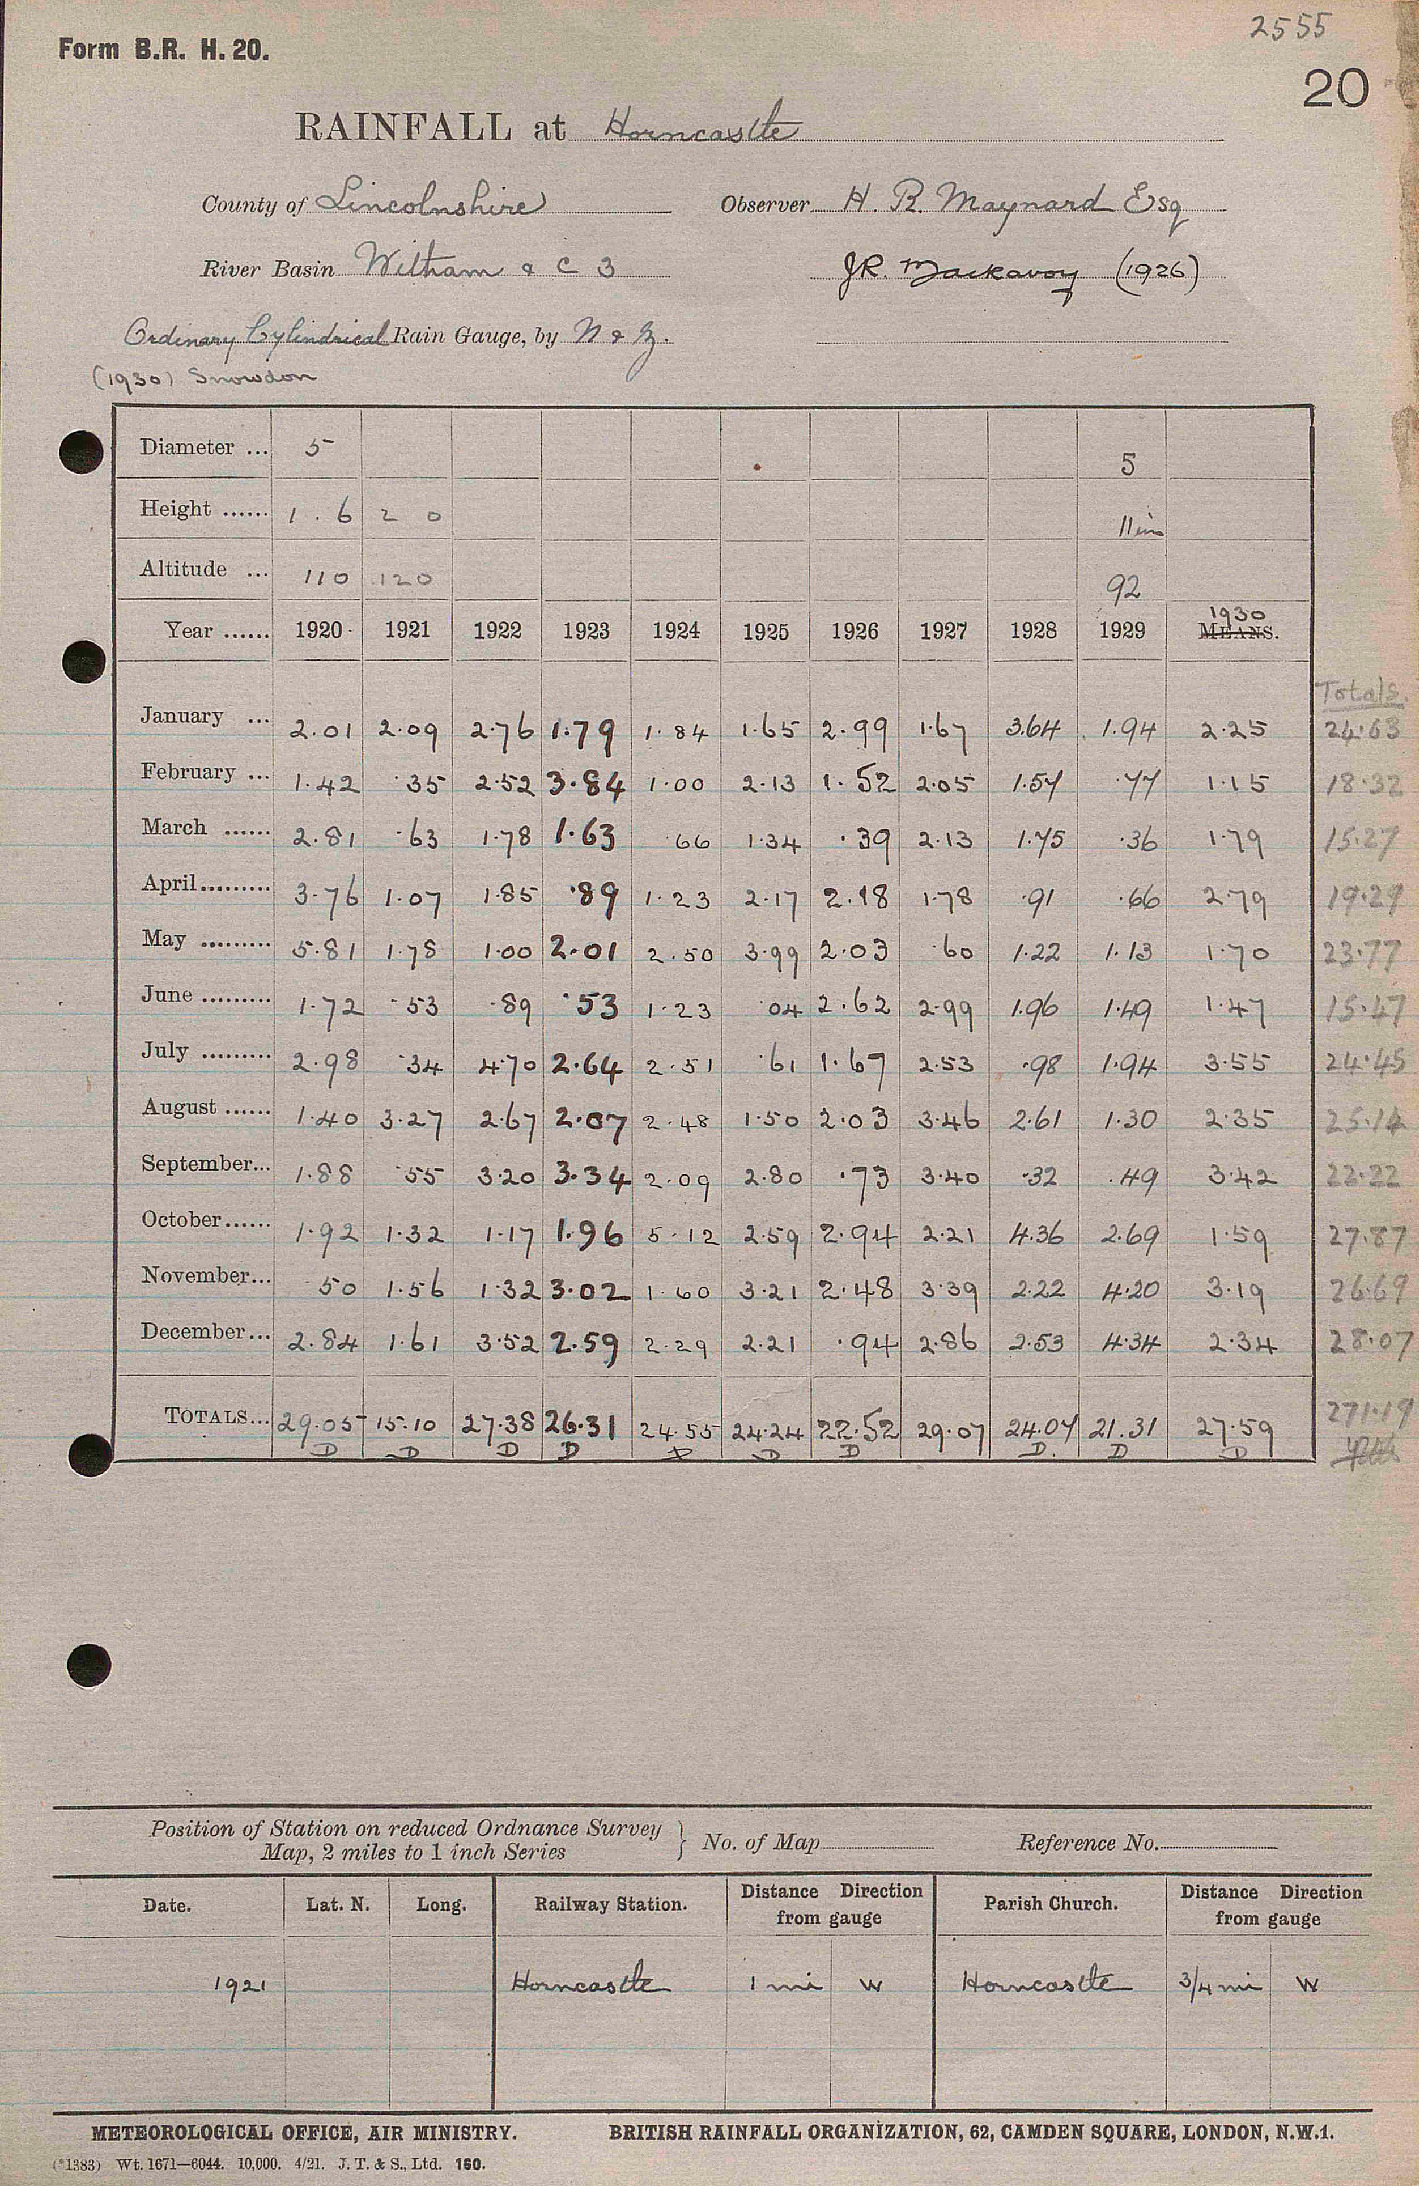 2555
Form B.R. H. 20.
20
RAINFALL at Horncastle
County of Lincolnshire Observer H. R. Maynard Esq
River Basin Witham & C 3 J.R. Mackavoy (1926)
Ordinary Cylindrical Rain Gauge, by N & Z.
(1930) Snowdon
Diameter ... 5 5
Height ...... 1 . 6 2 0 11 in
Altitude ... 110 120 92
Year ...... 1920 1921 1922 1923 1924 1925 1926 1927 1928 1929 1930 MEANS.
Totals.
January ... 2.01 2.09 2.76 1.79 1.84 1.65 2.99 1.67 3.64 1.94 2.25 24.63
February ... 1.42 .35 2.52 3.84 1.00 2.13 1.52 2.05 1.57 .77 1.15 18.32
March ...... 2.81 .63 1.78 1.63 .66 1.34 .39 2.13 1.75 .36 1.79 15.27
April ......... 3.76 1.07 1.85 .89 1.23 2.17 2.18 1.78 .91 .66 2.79 19.29
May ......... 5.81 1.78 1.00 2.01 2.50 3.99 2.03 .60 1.22 1.13 1.70 23.77
June ......... 1.72 .53 .89 .53 1.23 .04 2.62 2.99 1.96 1.49 1.47 15.47
July ......... 2.98 .34 4.70 2.64 2.51 .61 1.67 2.53 .98 1.94 3.55 24.45
August ...... 1.40 3.27 2.67 2.07 2.48 1.50 2.03 3.46 2.61 1.30 2.35 25.14
September... 1.88 .55 3.20 3.34 2.09 2.80 .73 3.40 .32 .49 3.42 22.22
October...... 1.92 1.32 1.17 1.96 5.12 2.59 2.94 2.21 4.36 2.69 1.59 27.87
November... .50 1.56 1.32 3.02 1.60 3.21 2.48 3.39 2.22 4.20 3.19 26.69
December... 2.84 1.61 3.52 2.59 2.29 2.21 .94 2.86 2.53 4.34 2.34 28.07
TOTALS... 29.05 15.10 27.38 26.31 24.55 24.24 22.52 29.07 24.07 21.31 27.59 271.19
D D D D D D D D D D
Position of Station on reduced Ordnance Survey
Map, 2 miles to 1 inch Series } No. of Map Reference No.
Date. Lat. N. Long. Railway Station. Distance Direction from gauge Parish Church. Distance Direction from gauge
1921 Horncastle 1 mi W Horncastle 3/4 mi W
METEOROLOGICAL OFFICE, AIR MINISTRY. BRITISH RAINFALL ORGANIZATION, 62, CAMDEN SQUARE, LONDON, N.W.1.
(*1383) Wt. 1671—6044. 10,000. 4/21. J. T. & S., Ltd. 160.